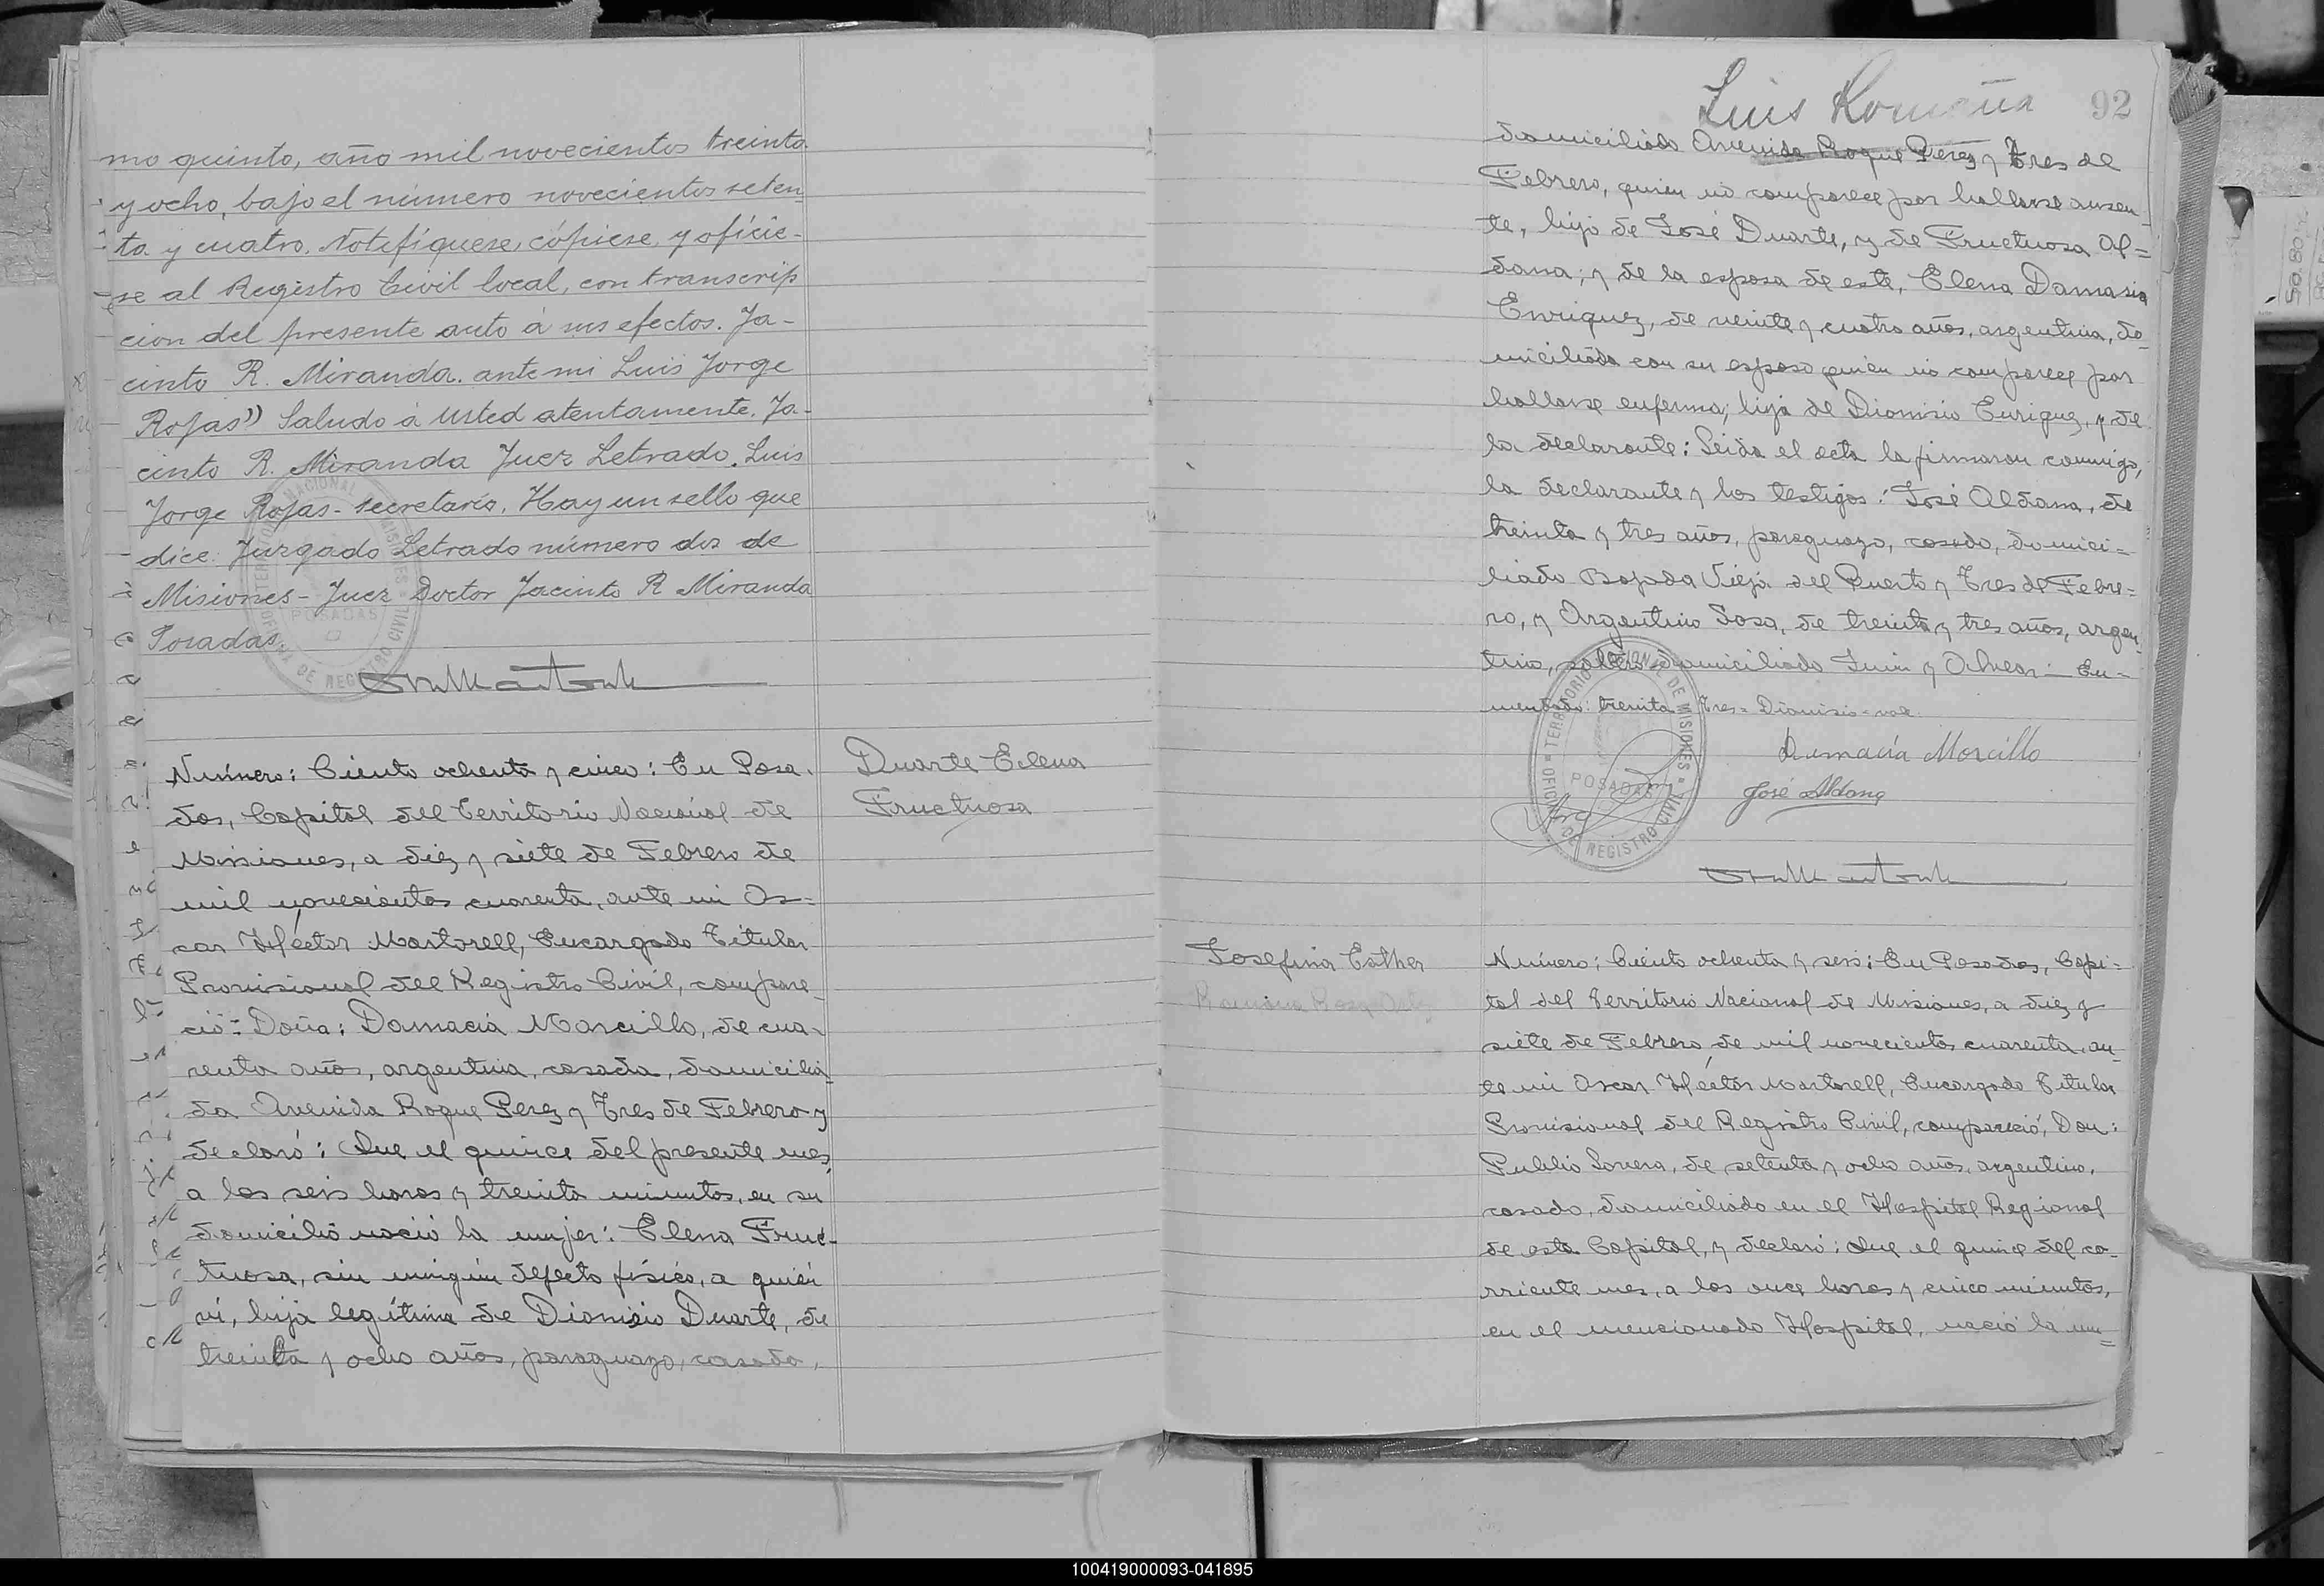 mo quinto, año mil novecientos treinta
y ocho, bajo el número novecientos seten
ta y cuatro. Notifíquese, cópiese, y ofície-
se al Registro Civil local, con transcrip
cion del presente auto á sus efectos. Ja-
cinto R. Miranda. ante mi Luis Jorge
Rojas") Saludo á usted atentamente. Ja-
cinto R. Miranda Juez Letrado. Luis
Jorge Rojas - secretario. Hay un sello que
dice: Juzgado Letrado número dos de
Misiones - Juez Doctor Jacinto R Miranda
Posadas.
Duarte Elena
Fructuosa
Número: Ciento ochenta y cinco: En Posa-
das, Capital del Territorio Nacional de
Misiones, a diez y siete de Febrero de
mil novecientos cuarenta, ante mi Os=
car Héctor Martorell, Encargado Titular
Provisional del Registro Civil, compare_
ció: Doña: Damacia Morcillo, de cua-
renta años, argentina, casada, domicilia_
da Avenida Roque Perez y Tres de Febrero y
declaró: Que el quince del presente mes,
a las seis horas y treinta minutos, en su
domicilio nació la mujer: Elena Fruc-
tuosa, sin ningún defecto físico, a quién
ví, hija legítima de Dionisio Duarte, de
treinta y ocho años, paraguayo, casado,
Luis Romaña
92
domiciliado Avenida Roque Perez y Tres de
Febrero, quien no comparece por hallarse ausen_
te, hijo de José Duarte, y de Fructuosa Al=
dana; y de la esposa de este, Elena Damasia
Enriquez, de veinte y cuatro años, argentina, do_
miciliada con su esposo quién no comparece por
hallarse enferma; hija de Dionisio Enriquez, y de
la declarante: Leida el acta la firmaron conmigo,
la declarante y los testigos: José Aldana, de
treinta y tres años, paraguayo, casado, domici=
liado Bajada Vieja del Puerto y Tres de Febre=
ro, y Argentino Sosa, de treinta y tres años, argen_
tino, soltero domiciliado Junin y Alvear: En=
mendado: treinta Tres = Dionisio = vale
Dumacia Morcillo
José Aldana
OFICINA DE REGISTRO CIVIL = TERRITORIO NACIONAL DE MISIONES =
POSADAS
Josefina Esther
Número: Ciento ochenta y seis: En Posadas, Capi=
tal del Territorio Nacional de Misiones, a diez y
siete de Febrero de mil novecientos cuarenta, an_
te mi Oscar Héctor Martorell, Encargado Titular
Provisional del Registro Civil, compareció, Don:
Publio Lovera, de setenta y ocho años, argentino,
casado, domiciliado en el Hospital Regional
de esta Capital, y declaró: Que el quince del co-
rriente mes, a las once horas y cinco minutos,
en el mencionado Hospital, nació la mu=
100419000093-041895